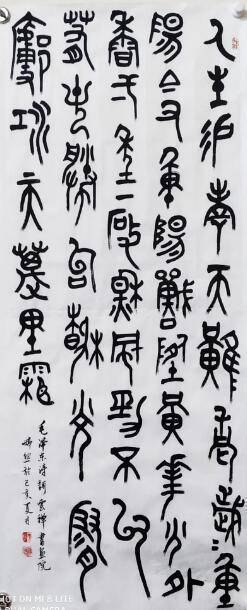 人生易老天難老歲〻重
陽今又重陽戰地黃花分外
香一年一度秋風勁不似
春光勝似春光寥
廓江天萬里霜
毛澤東詩詞雲禅書畫院
於己亥夏月
HOT ON MI 8 LITE
DUAL CAMERA